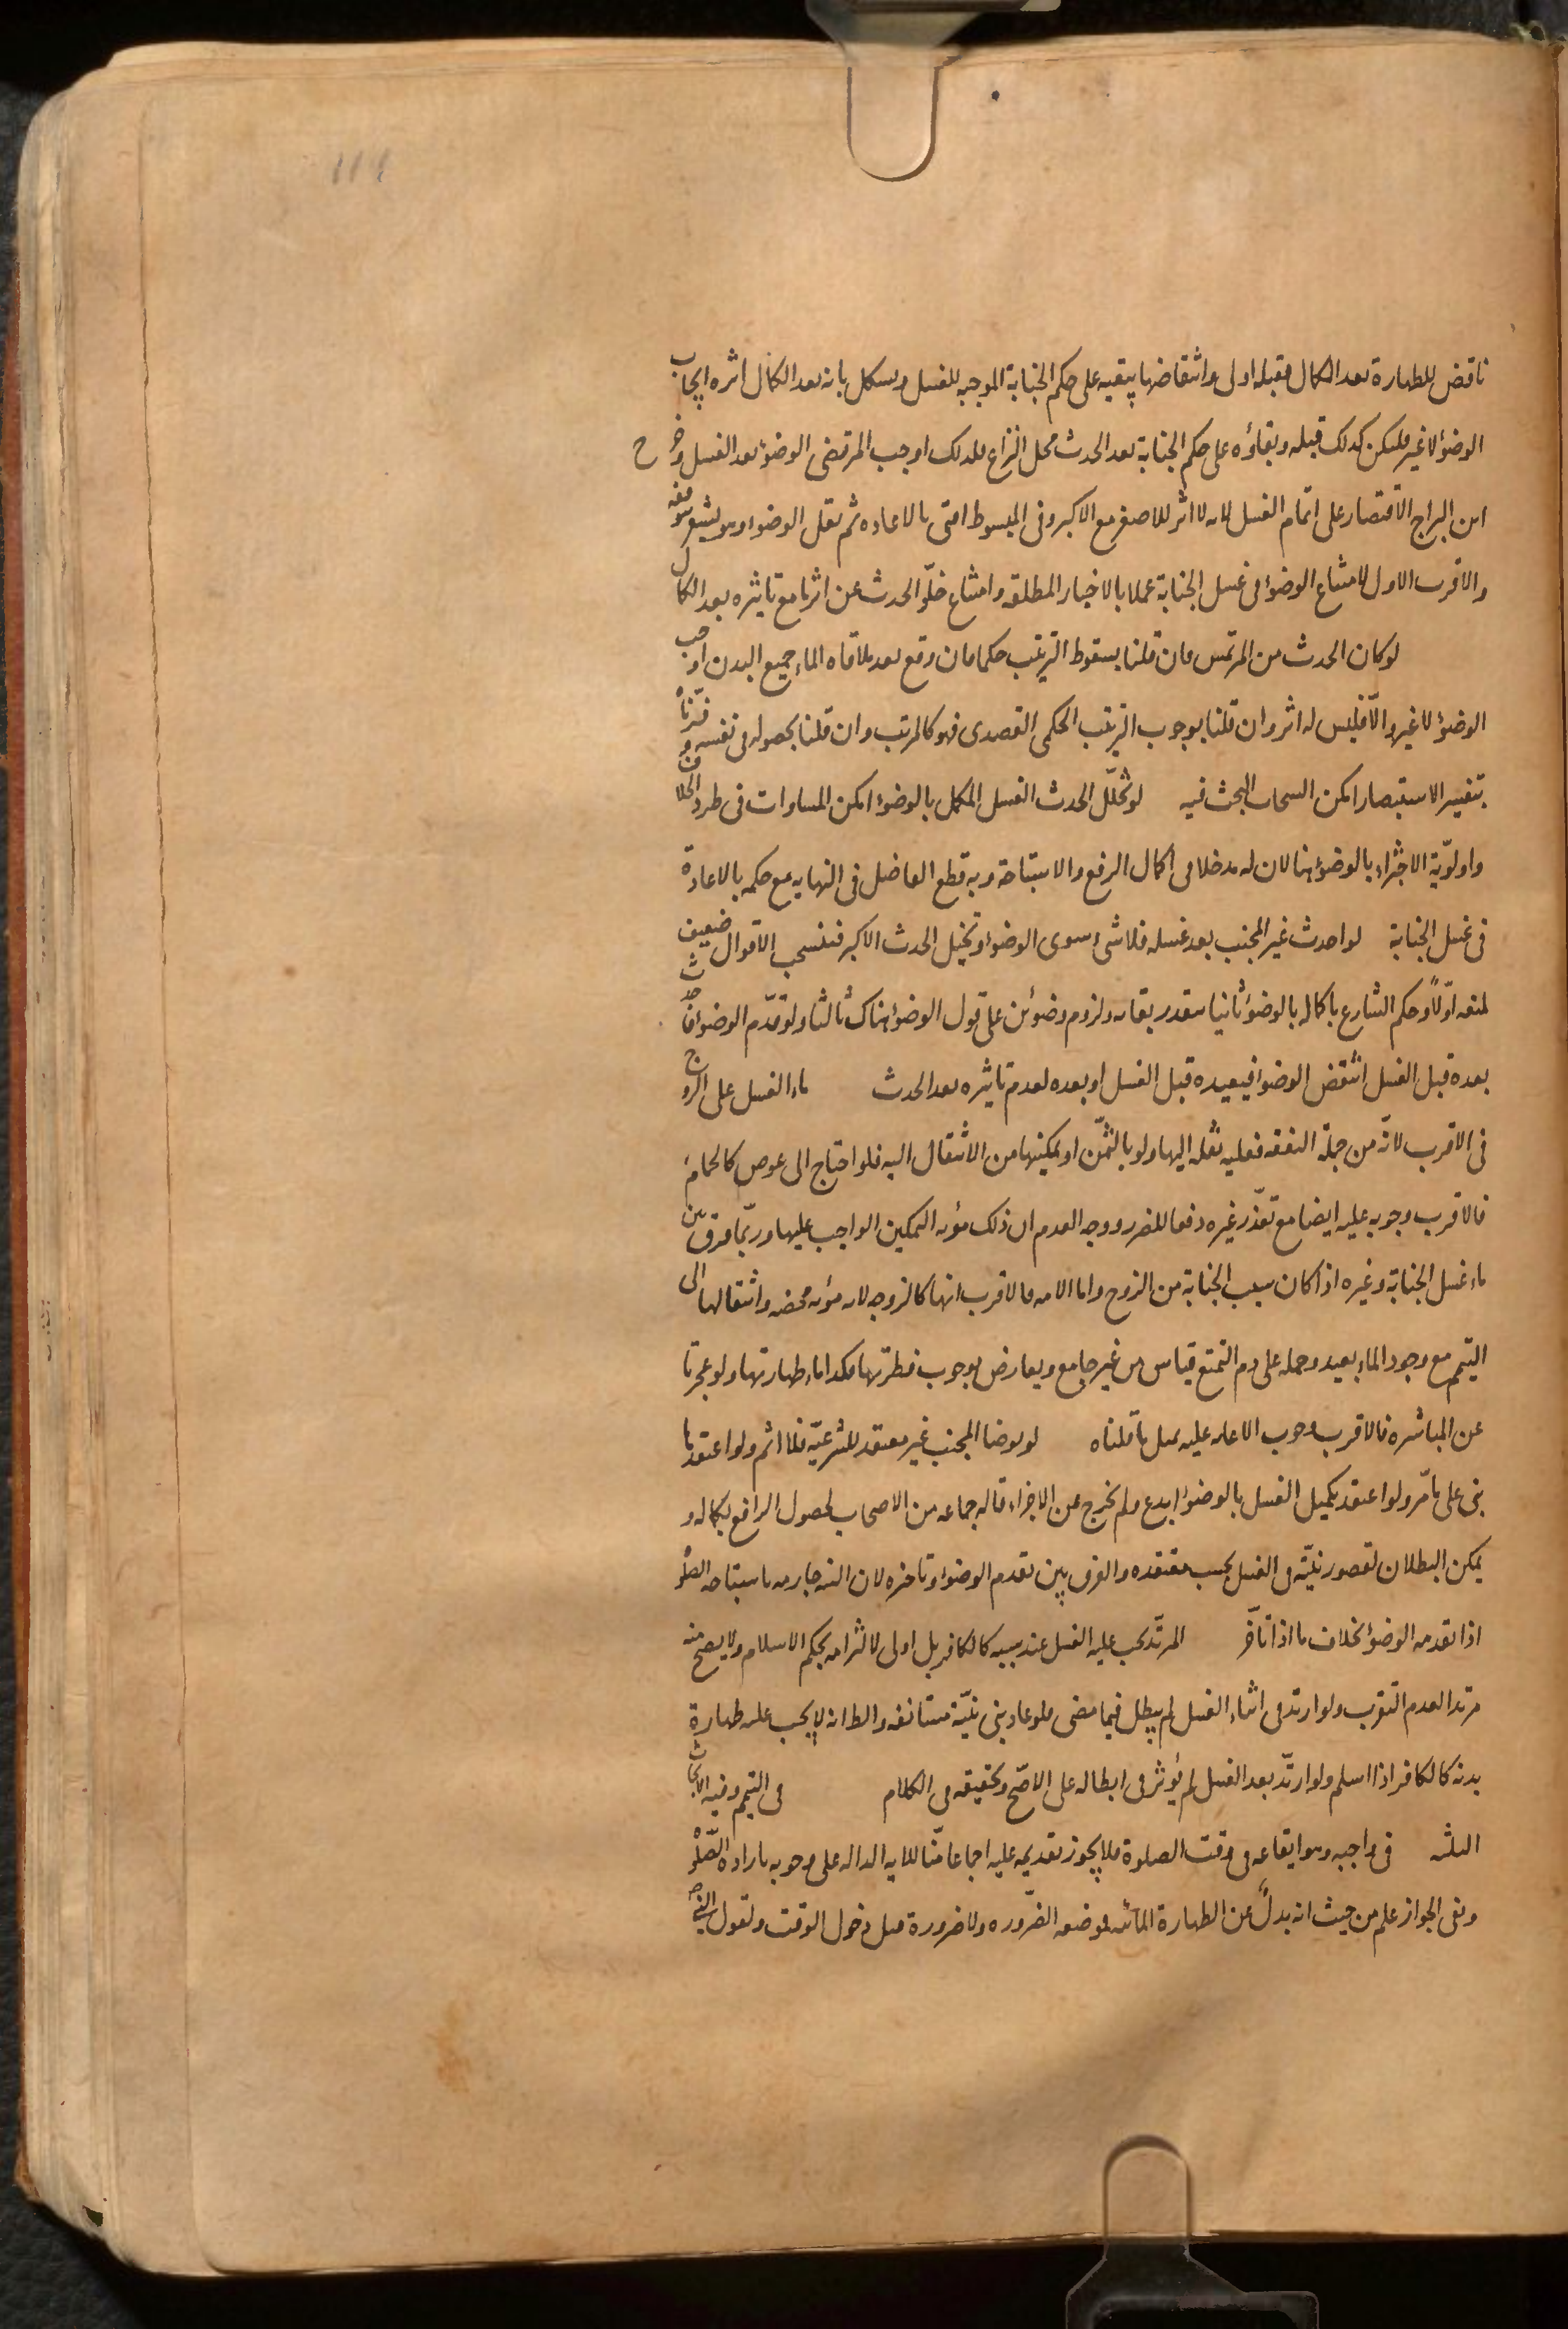 111
ناقض للطهارة بعد الكمال فقبله اولى وانتقاضها يبقيه على حكم الجنابة الموجبه للغسل ويسكل بانه بعد الكمال اثره ايجاب
الوضوٴ لا غير فليكن كدلك قبله وبقاؤه على حكم الجنابة بعد الحدث محل النزاع فلدلك اوجب المرتضى الوضوٴ بعد الغسل وخرج
ابن البراج الاقتصار على اتمام الغسل لانه لا اثر للاصغر مع الاكبر وفى المبسوط افتى بالاعاده ثم نقل الوضوٴ وهو يشعر بتوقفه
والاقرب الاول لامتناع الوضوٴ فى غسل الجنابة عملا بالاخبار المطلقه وامتناع خلوّ الحدث عن اثرنا مع تاثيره بعد الكمال
لو كان الحدث من المرتمس فان قلنا بسقوط الترتيب حكما فان وقع بعد ملاقاه الماء جميع البدن اوجب
الوضوٴ لا غير والّا فليس له اثر وان قلنا بوجوب الترتيب الحكمى القصدى فهو كالمرتب وان قلنا بحصوله فى نفسه وفسّرناه
بتفسير الاستبصار امكن انسحاب البحث فيه لو تخلّل الحدث الغسل المكمل بالوضوٴ امكن المساوات فى طرد الخلاف
واولويّة الاجتزاء بالوضوٴ هنا لان له مدخلا فى اكمال الرفع والاستباحة وبه قطع الفاضل فى النهايه مع حكمه بالاعادة
فى غسل الجنابة لو احدث غير المجنب بعد غسله فلا شىء سوى الوضوٴ وتخيل الحدث الاكبر فتنسحب الاقوال ضعيف
لمنعه اوّلاً وحكم الشارع باكماله بالوضوٴ ثانيا بتقدر بقائه ولزوم وضوٴين على قول الوضوٴ هناك ثالثا ولو تقدّم الوضوٴ فاحدث
بعده قبل الغسل انتقض الوضوٴ فيعيده قبل الغسل او بعده لعدم تاثيره بعد الحدث ماء الغسل على الزوج
فى الاقرب لانّه من جملة النفقه فعليه نقله اليها ولو بالثمّن او يمكينها من الانتقال اليه فلو احتاج الى عوض كالحمام
فالاقرب وجوبه عليه ايضا مع تعذّر غيره دفعا للضرر ووجه العدم ان ذلك مؤنه التمكين الواجب عليها وربّما فرق بين
ماء غسل الجنابة وغيره اذا كان سبب الجنابة من الزوج واما الامه فالاقرب انها كالزوجه لانه مؤنه محضه وانتقالها الى
التيمم مع وجود الماء بعيد وحمله على دم التمتع قياس من غير جامع ويعارض بوجوب فطرتها فكدا ماء طهارتها ولو عجزتا
عن المباشره فالاقرب وجوب الاعانه عليه بمثل ما قلناه لو توضا المجنب غير معتقد للشرعيّه فلا اثم ولو اعتقدها
بنى على ما مرّ ولو اعتقد تكميل الغسل بالوضوٴ ابدع ولم يخرج عن الاجزاء قاله جماعه من الاصحاب لحصول الرافع بكماله و
يمكن البطلان لقصور نيّته فى الغسل بحسب معتقده والفرق بين تقدم الوضوٴ وتاخره لان النيه جازمه باستباحه الصلوٰة
اذا تقدمه الوضوٴ بخلاف ما اذا تاخّر المرتّد يجب عليه الغسل عند سببه كالكافر بل اولى لالتزامه بحكم الاسلام ولا يصح منه
مرتدا لعدم التقرب ولو ارتد فى اثناء الغسل لم يبطل فيما مضى فلو عاد بنى بنيّة مستانفه والظ انه لا يجب عليه طهارة
بدنه كالكافر اذا اسلم ولو ارتدّ بعد الغسل لم يؤثر فى ابطاله على الاصّح وتحقيقه فى الكلام فى التيمم وفيه الابحاث
الثلثه فى واجبه وهو ايقاعه فى وقت الصلوة فلا يجوز تقديمه عليه اجماعا منّا للايه الداله على وجوبه بارادة الصّلوٰة
ونفى الجواز علم من حيث انه بدلٌ عن الطهارة المائيه لموضعه الضّروره ولا ضرورة قبل دخول الوقت ولقول النبى ص